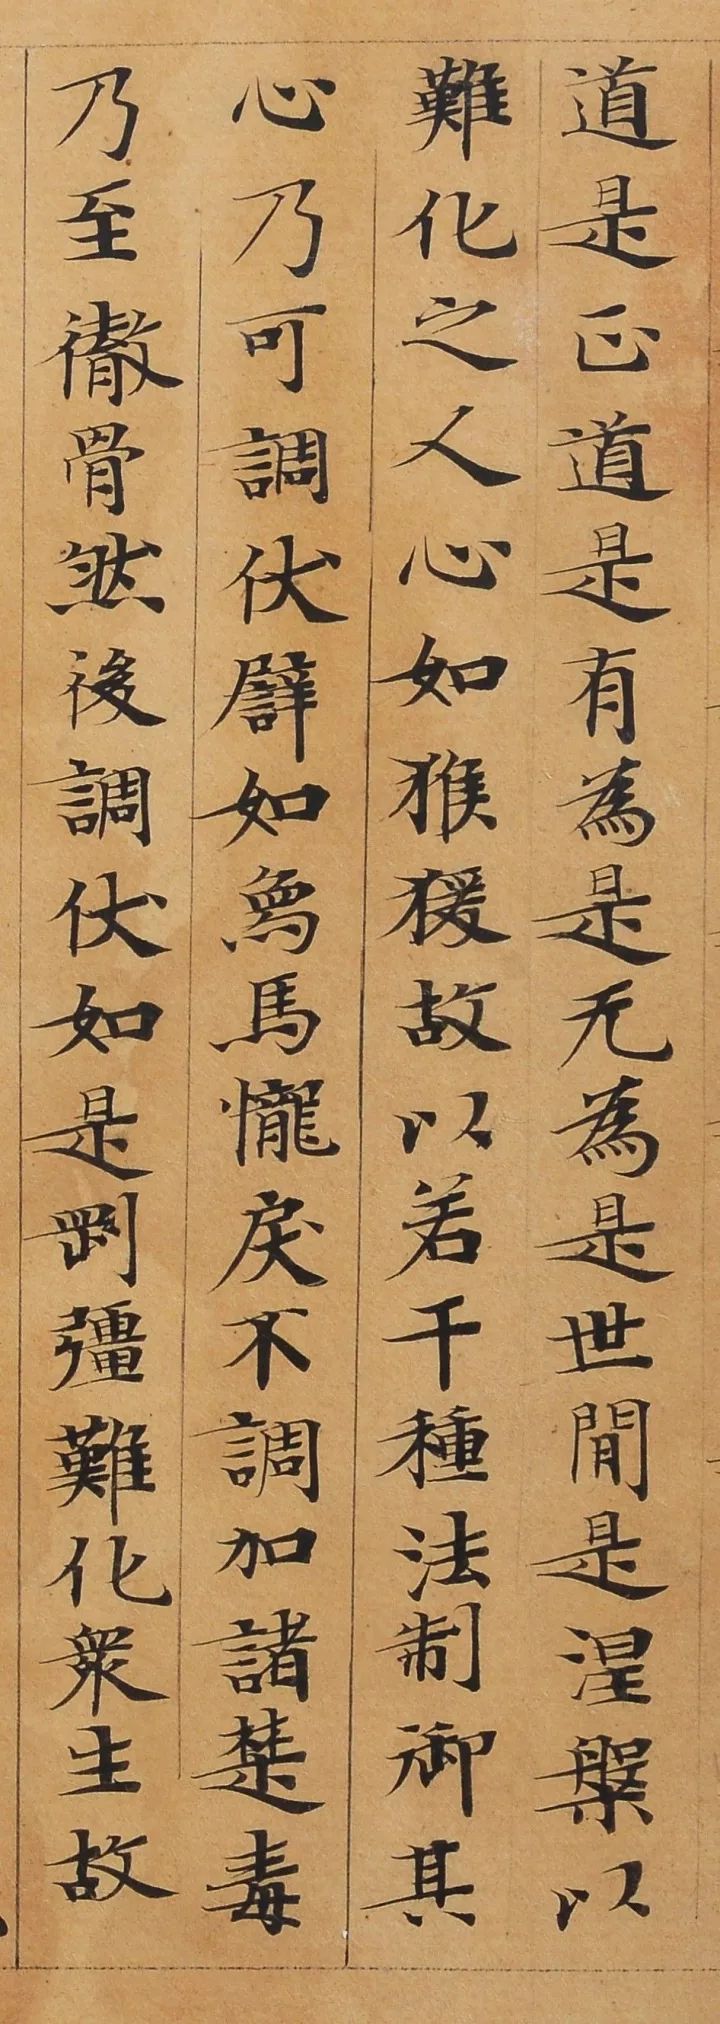 道是正道是有為是无為是世間是涅槃以
難化之人心如猴猨故以若干種法制御其
心乃可調伏譬如象馬𢤱戾不調加諸楚毒
乃至徹骨然後調伏如是剛彊難化衆生故